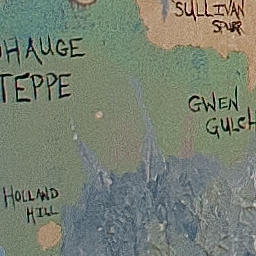 SULLIVAN
SPUR
HAUGE
TEPPE
GWEN
GULCH
HOLLAND
HILL